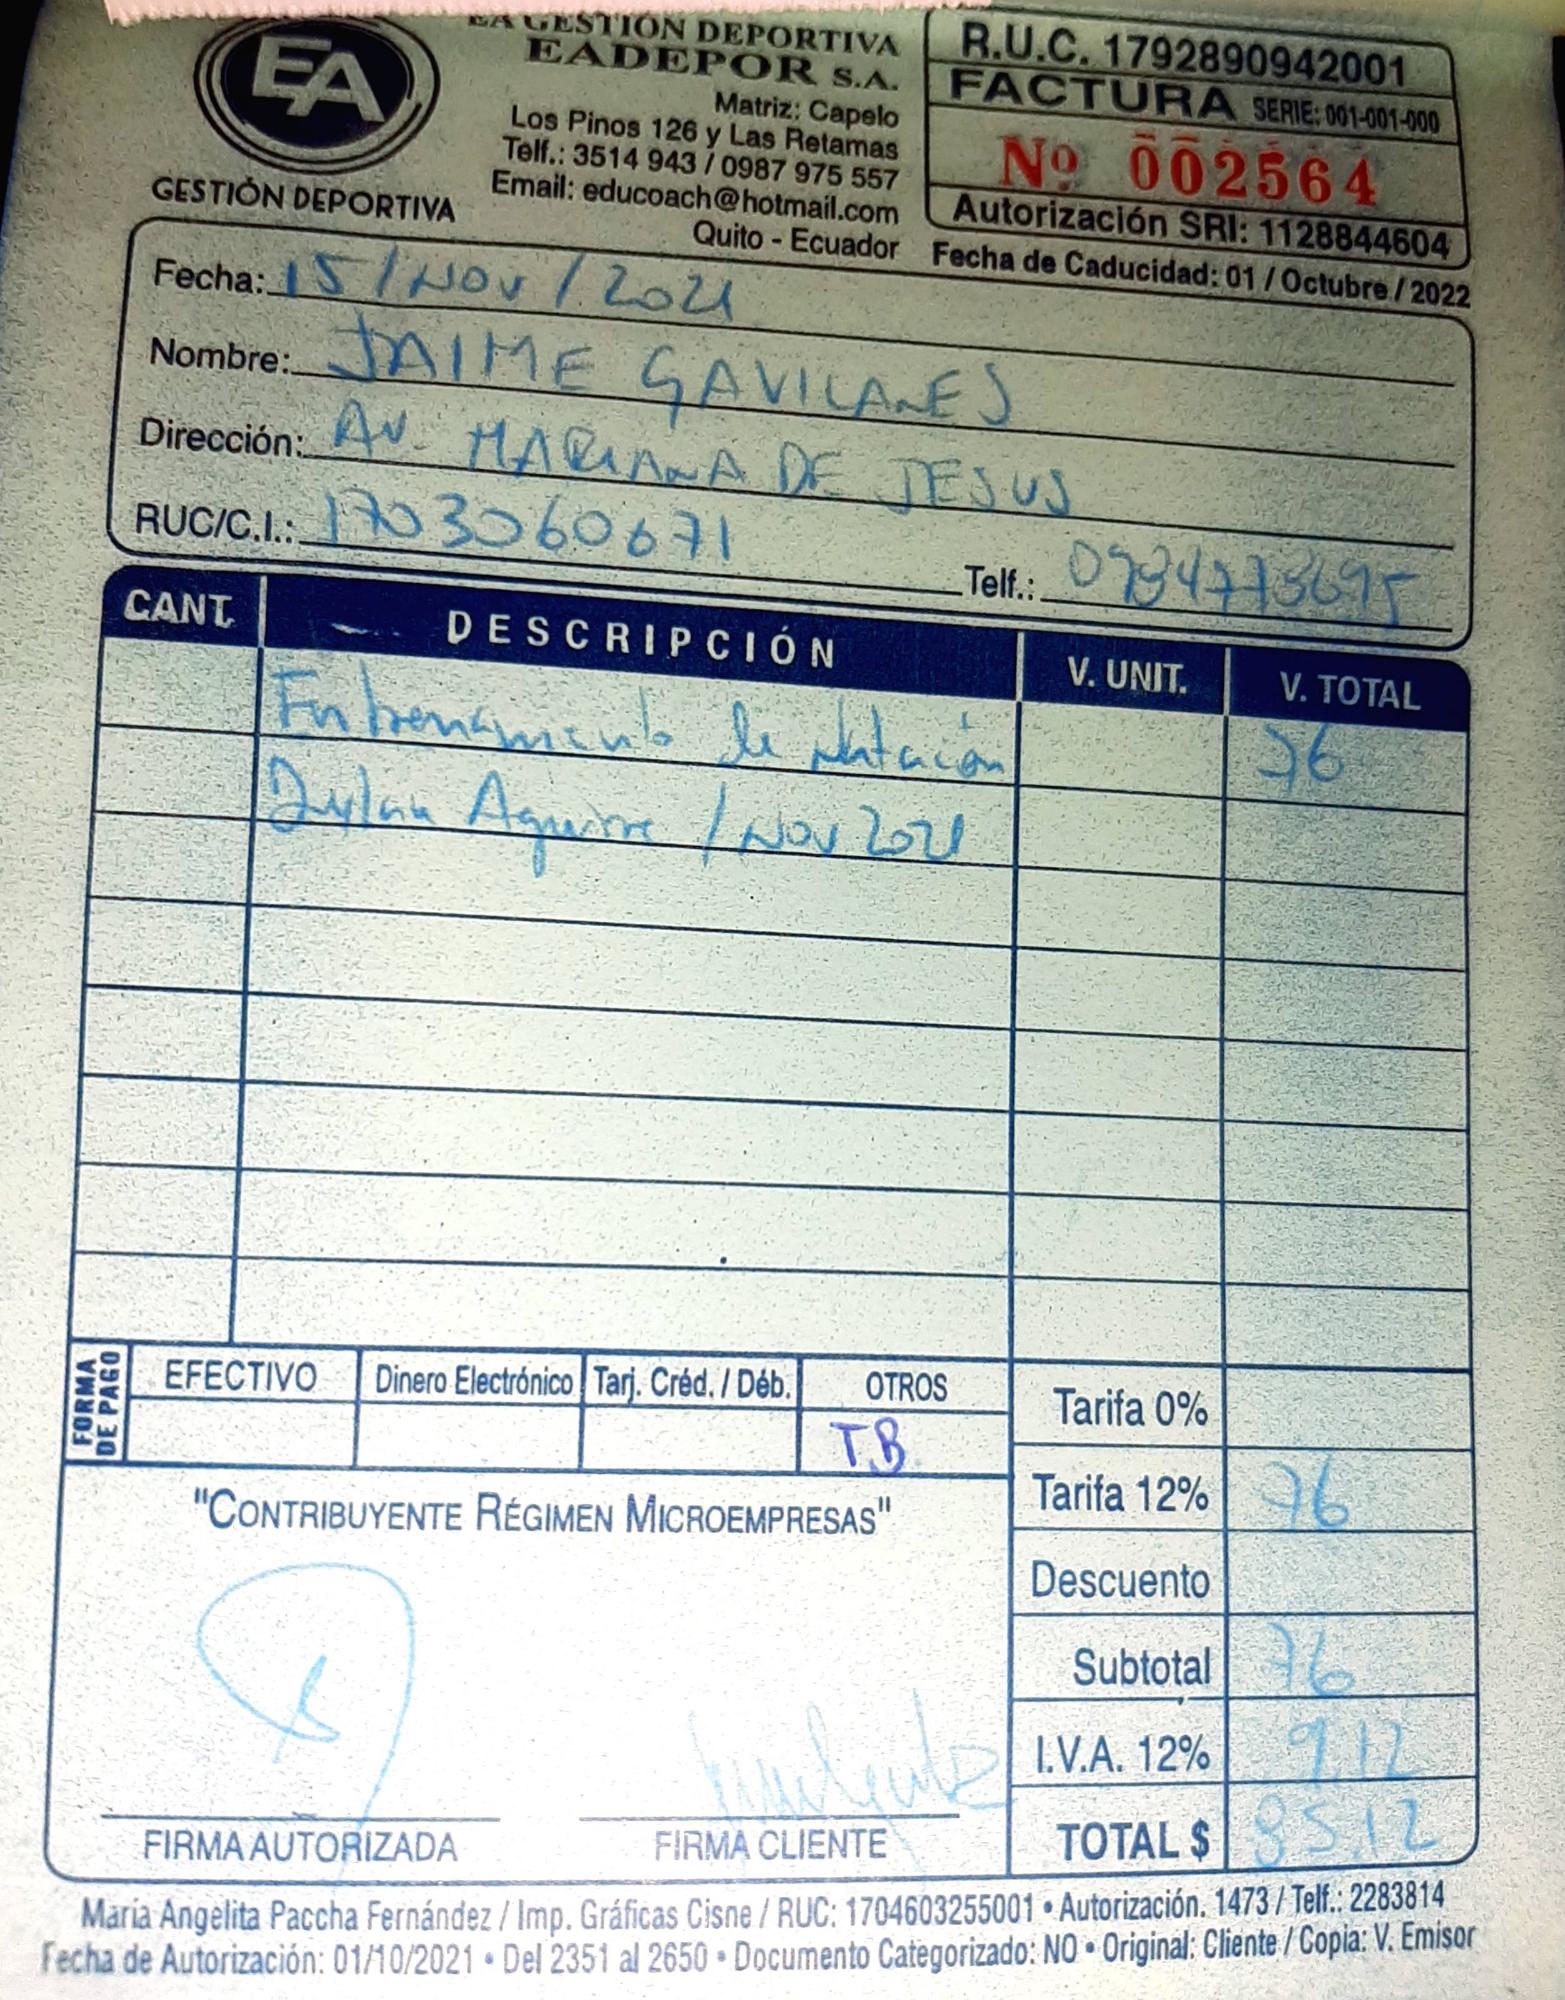 EA
GESTIÓN DEPORTIVA
EA GESTIÓN DEPORTIVA
EADEPOR S.A.
Matriz: Capelo
Los Pinos 126 y Las Retamas
Telf.: 3514 943 / 0987 975 557
Email: educoach@hotmail.com
Quito - Ecuador
R.U.C. 1792890942001
FACTURA SERIE: 001-001-000
Nº 002564
Autorización SRI: 1128844604
Fecha de Caducidad: 01 / Octubre / 2022
Fecha: 15 / NOV / 2021
Nombre: JAIME GAVILANES
Dirección: AV. MARIANA DE JESUS
RUC/C.I.: 1703060671
Telf.:
CANT. DESCRIPCIÓN V. UNIT. V. TOTAL
Entrenamiento de Natación 76
Aguirre / NOV 2021
FORMA DE PAGO
EFECTIVO Dinero Electrónico Tarj. Créd. / Déb. OTROS
T.B
Tarifa 0%
Tarifa 12% 76
Descuento
Subtotal 76
I.V.A. 12% 9.12
TOTAL $ 85.12
"CONTRIBUYENTE RÉGIMEN MICROEMPRESAS"
FIRMA AUTORIZADA FIRMA CLIENTE
María Angelita Paccha Fernández / Imp. Gráficas Cisne / RUC: 1704603255001 • Autorización. 1473 / Telf.: 2283814
Fecha de Autorización: 01/10/2021 • Del 2351 al 2650 • Documento Categorizado: NO • Original: Cliente / Copia: V. Emisor